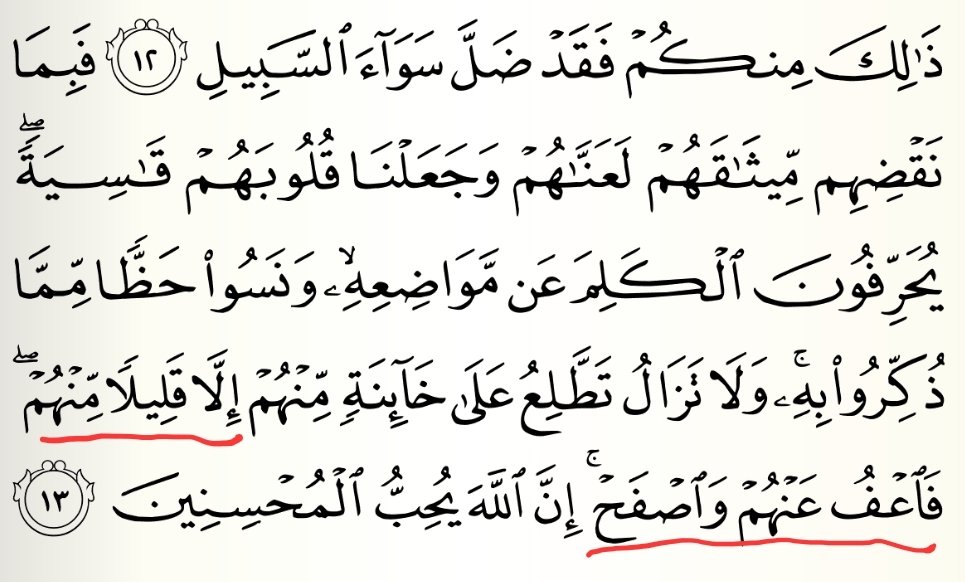 ذَٰلِكَ مِنكُمۡ فَقَدۡ ضَلَّ سَوَآءَ ٱلسَّبِيلِ ١٢ فَبِمَا
نَقۡضِهِم مِّيثَٰقَهُمۡ لَعَنَّٰهُمۡ وَجَعَلۡنَا قُلُوبَهُمۡ قَٰسِيَةٗۖ
يُحَرِّفُونَ ٱلۡكَلِمَ عَن مَّوَاضِعِهِۦۙ وَنَسُواْ حَظّٗا مِّمَّا
ذُكِّرُواْ بِهِۦۚ وَلَا تَزَالُ تَطَّلِعُ عَلَىٰ خَآئِنَةٖ مِّنۡهُمۡ إِلَّا قَلِيلٗا مِّنۡهُمۡۖ
فَٱعۡفُ عَنۡهُمۡ وَٱصۡفَحۡۚ إِنَّ ٱللَّهَ يُحِبُّ ٱلۡمُحۡسِنِينَ ١٣